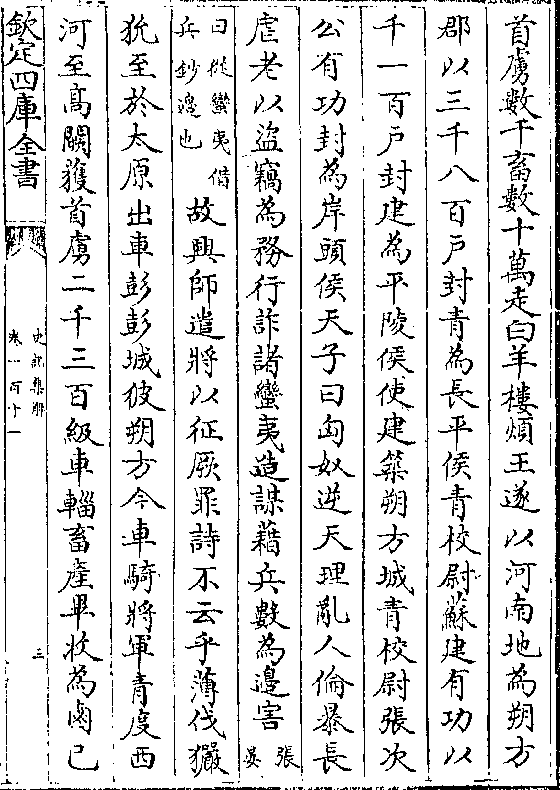 首虜數千畜數十萬走白羊樓煩王遂以河南地為朔方
郡以三千八百戶封青為長平侯青校尉蘇建有功以
千一百戶封建為平陵侯使建築朔方城青校尉張次
公有功封為岸頭侯天子曰匈奴逆天理亂人倫暴長
虐老以盜竊為務行詐諸蠻夷造謀藉兵數為邊害張晏
曰從蠻夷借兵鈔邊也故興師遣將以征厥罪詩不云乎薄伐玁
狁至於太原出車彭彭城彼朔方今車騎將軍青度西
河至高闕獲首虜二千三百級車輜畜產畢收為鹵已
欽定四庫全書
史記集解
卷一百十一
三